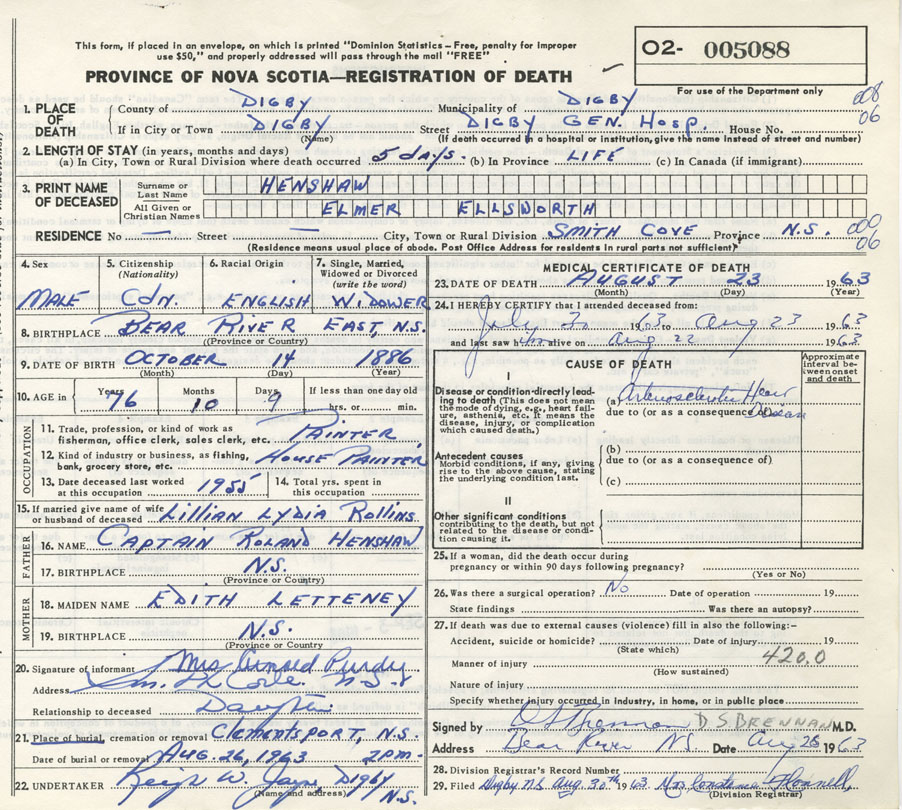 This form, if placed in an envelope, on which is printed "Dominion Statistics - Free, penalty for improper
use $50," and properly addressed will pass through the mail "FREE"
O2- 005088
PROVINCE OF NOVA SCOTIA—REGISTRATION OF DEATH
For use of the Department only
1. PLACE OF DEATH
County of DIGBY Municipality of DIGBY 008
If in City or Town DIGBY Street DIGBY GEN. HOSP. House No. 06
(Name) (If death occurred in a hospital or institution, give the name instead of street and number)
2. LENGTH OF STAY (in years, months and days)
(a) In City, Town or Rural Division where death occurred 5 days. (b) In Province LIFE (c) In Canada (if immigrant)
3. PRINT NAME OF DECEASED
Surname or Last Name HENSHAW
All Given or Christian Names ELMER ELLSWORTH
RESIDENCE No — Street — City, Town or Rural Division SMITH COVE Province N.S. 000
06
(Residence means usual place of abode. Post Office Address for residents in rural parts not sufficient)
4. Sex MALE
5. Citizenship (Nationality) CDN.
6. Racial Origin ENGLISH
7. Single, Married, Widowed or Divorced (write the word) WIDOWER
8. BIRTHPLACE BEAR RIVER EAST, N.S.
(Province or Country)
9. DATE OF BIRTH OCTOBER 14 1886
(Month) (Day) (Year)
10. AGE in Years 76 Months 10 Days 9 If less than one day old hrs. or min.
OCCUPATION
11. Trade, profession or kind of work as fisherman, office clerk, sales clerk, etc. PAINTER
12. Kind of industry or business, as fishing, bank, grocery store, etc. HOUSE PAINTER
13. Date deceased last worked at this occupation 1955
14. Total yrs. spent in this occupation
15. If married give name of wife or husband of deceased Lillian Lydia Rollins
FATHER
16. NAME CAPTAIN ROLAND HENSHAW
17. BIRTHPLACE N.S.
(Province or Country)
MOTHER
18. MAIDEN NAME EDITH LETTENEY
19. BIRTHPLACE N.S.
(Province or Country)
20. Signature of informant Mrs Arnold Purdy
Address Cove N.S.
Relationship to deceased Daughter
21. Place of burial, cremation or removal Clementsport, N.S.
Date of burial or removal Aug. 26, 1963 2 pm.
22. UNDERTAKER W. Jayne, Digby
(Name and address) N.S.
MEDICAL CERTIFICATE OF DEATH
23. DATE OF DEATH AUGUST 23 1963
(Month) (Day) (Year)
24. I HEREBY CERTIFY that I attended deceased from:
July 30 1963 to Aug 23 1963
and last saw him alive on Aug 22 1963
CAUSE OF DEATH
Approximate interval between onset and death
I
Disease or condition directly leading to death (This does not mean the mode of dying, e.g., heart failure, asthenia, etc. It means the disease, injury, or complication which caused death.)
(a) Arteriosclerotic Heart Disease
due to (or as a consequence of)
Antecedent causes
Morbid conditions, if any, giving rise to the above cause, stating the underlying condition last.
(b)
due to (or as a consequence of)
(c)
II
Other significant conditions
contributing to the death, but not related to the disease or condition causing it.
25. If a woman, did the death occur during pregnancy or within 90 days following pregnancy?
(Yes or No)
26. Was there a surgical operation? No Date of operation 19
State findings Was there an autopsy?
27. If death was due to external causes (violence) fill in also the following:-
Accident, suicide or homicide? Date of injury 19
(State which)
Manner of injury 420.0
(How sustained)
Nature of injury
Specify whether injury occurred in industry, in home, or in public place
Signed by D S Brennan D S BRENNAN M.D.
Address Bear River NS Date Aug 26 1963
28. Division Registrar's Record Number
29. Filed Digby N.S. Aug. 30th 1963 Mrs Constance
(Division Registrar)